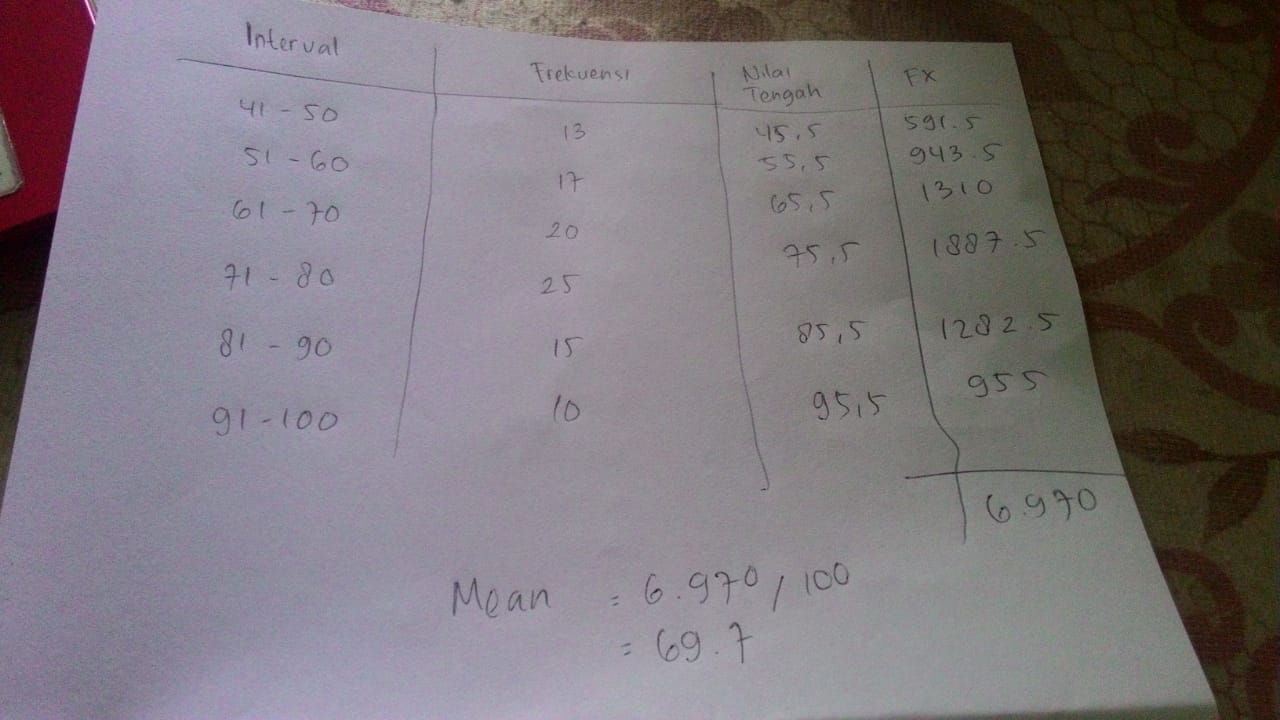 Interval Frekuensi Nilai Tengah FX
41 - 50 13 45,5 591.5
51 - 60 17 55,5 943.5
61 - 70 20 65,5 1310
71 - 80 25 75,5 1887.5
81 - 90 15 85,5 1282.5
91 - 100 10 95,5 955
6.970
Mean = 6.970 / 100
= 69.7